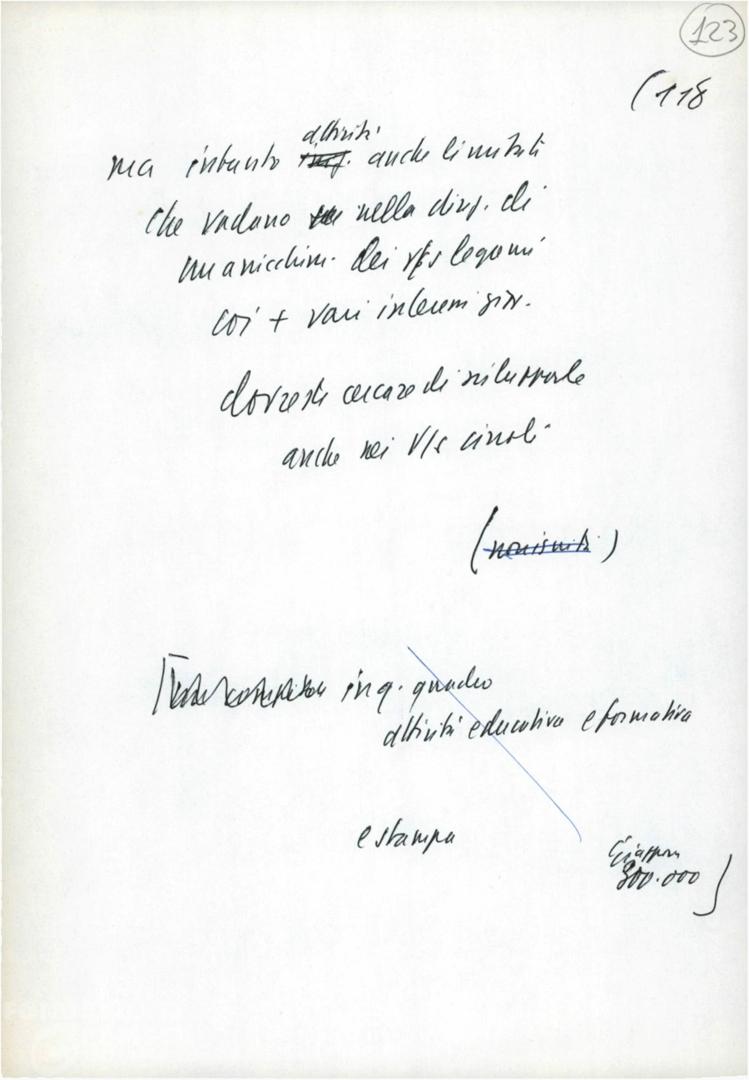 123
(118
attività
ma intanto anche limitati
che vadano nella dirz. di
un arricchim. dei v/s legami
coi + vari interessi giov.
dovreste cercare di svilupparle
anche nei V/s circoli
(
)
in q. quadro
attività educativa e formativa
e stampa
Giappon
300.000